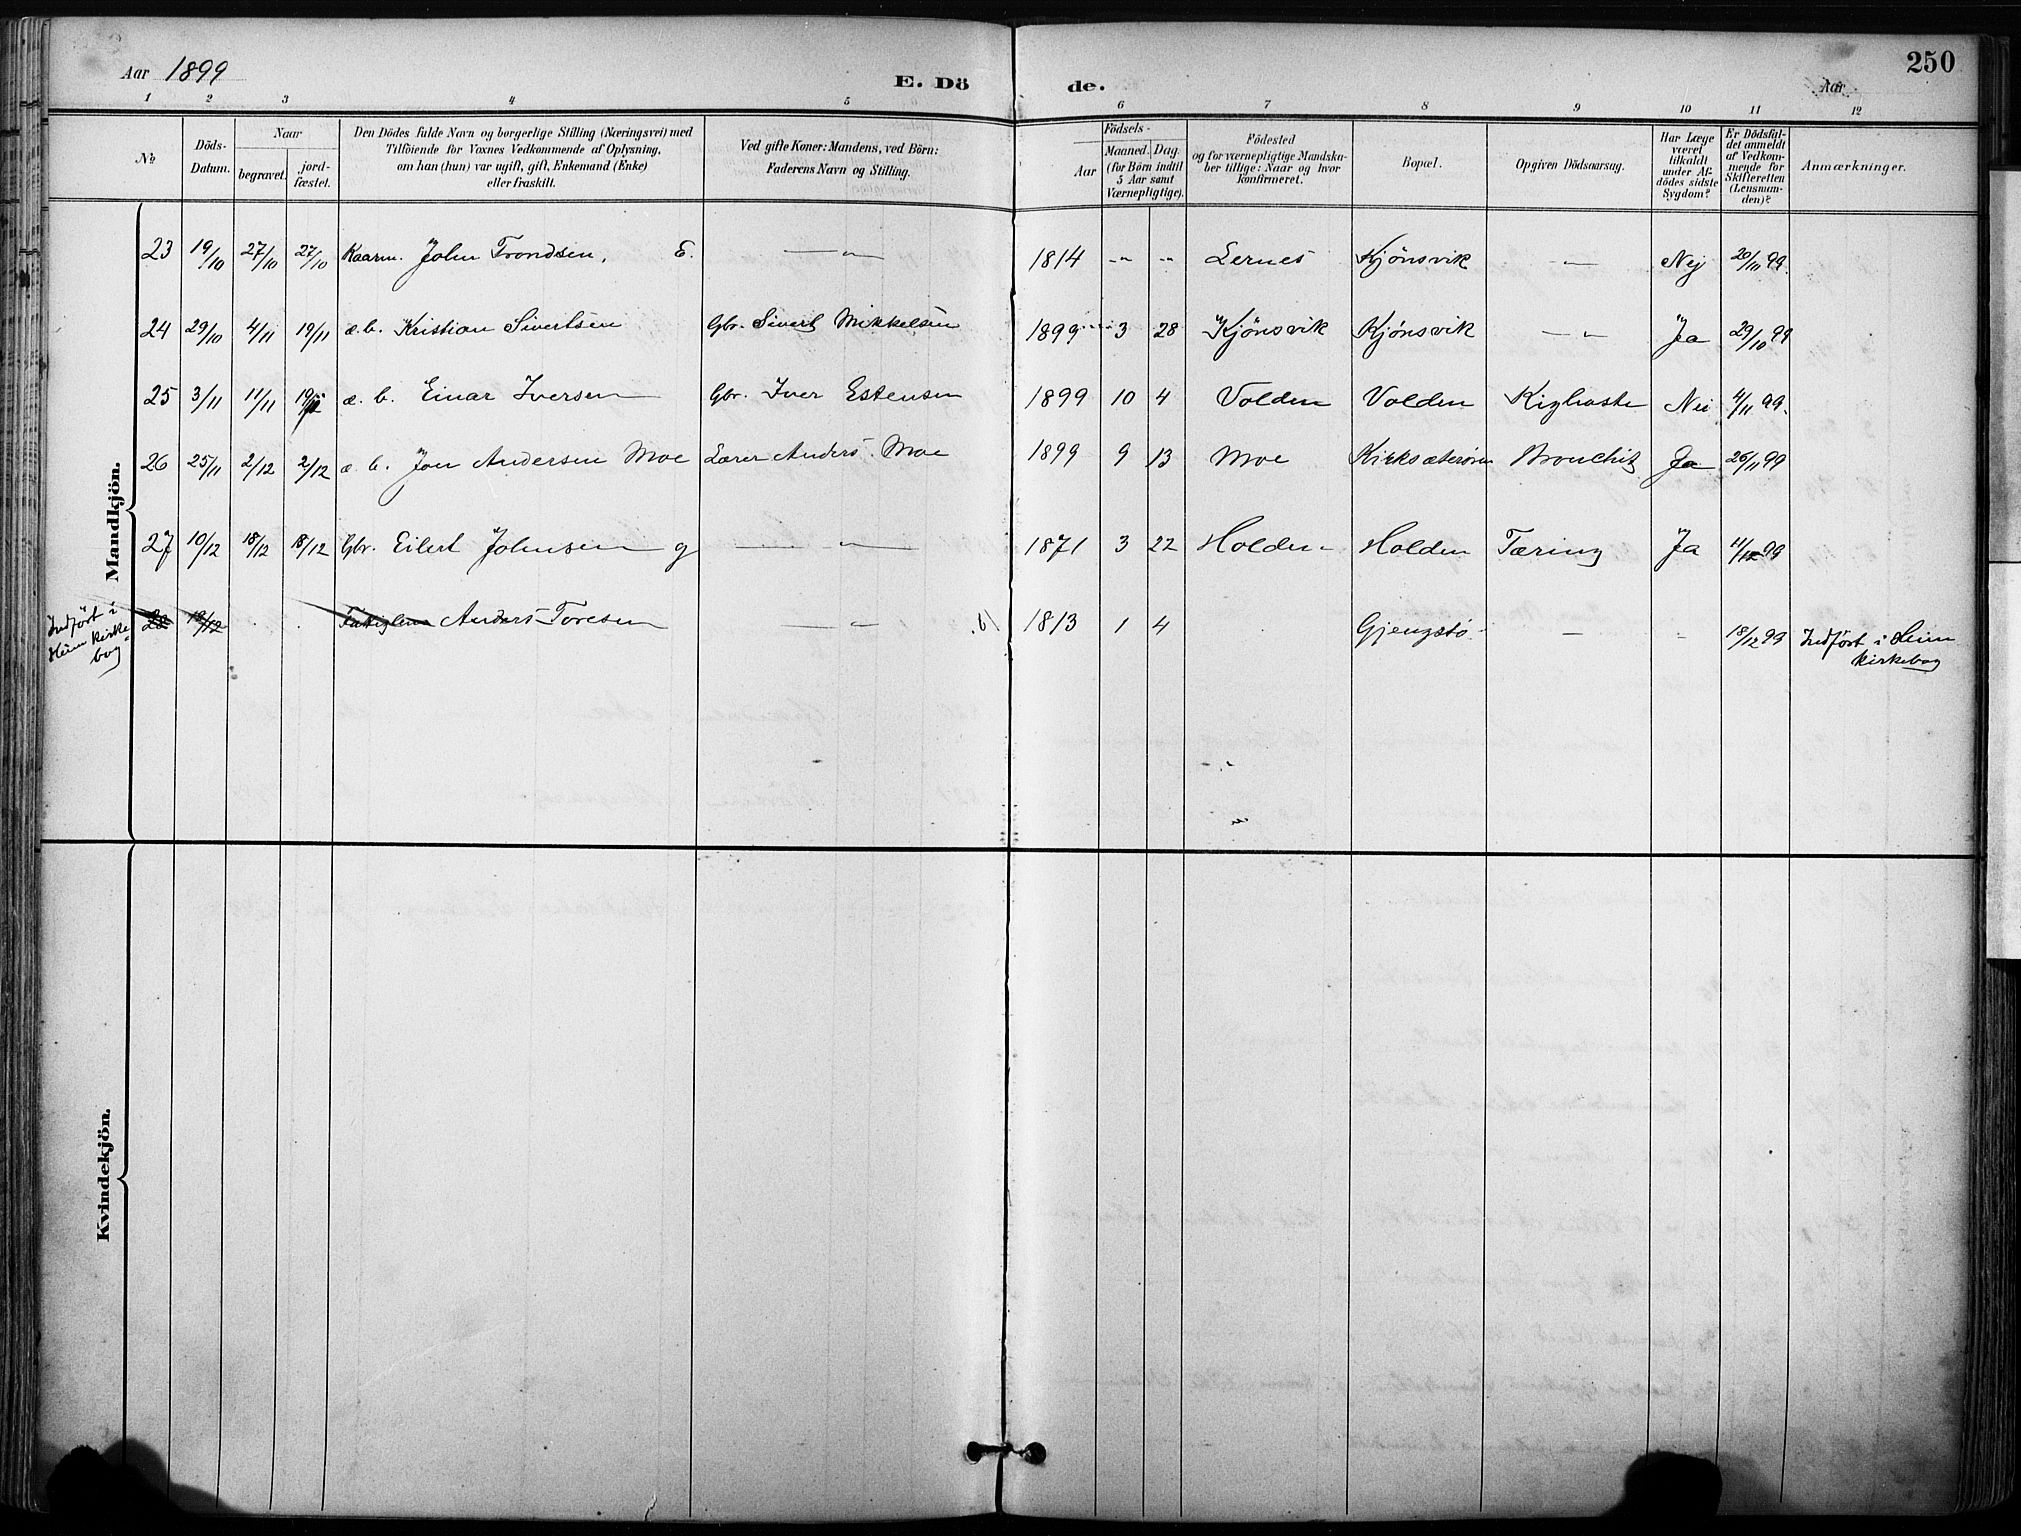 Aar 1899
E. Dö de.
Aar
250
1 2 3 4 5 6 7 8 9 10 11 12
No
Döds-Datum.
Naar
begravet.
jord-fæstet.
Den Dödes fulde Navn og borgerlige Stilling (Næringsvei) med
Tilföiende för Voxnes Vedkommende af Oplysning,
om han (hun) var ugift, gift, Enkemand (Enke)
eller fraskilt.
Ved gifte Koner: Mandens, ved Börn:
Faderens Navn og Stilling.
Födsels-
Aar
Maaned. Dag.
(for Börn indtil
5 Aar samt
Værnepligtige).
Födested
og for værnepligtige Mandska-
ber tillige: Naar og hvor
konfirmeret.
Bopæl.
Opgiven Dödsaarsag.
Har Læge
været
tilkaldt
under Af-
dödes sidste
Sygdom?
Er Dödsfal-
det anmeldt
af Vedkom-
mende for
Skifteretten
(Lensman-
den)?
Anmærkninger.
Mandkjön.
23 19/10 27/10 27/10 Kaarm. John Trondsen, E. —„— 1814 -„- -„- Lernes Kjönsvik —„— Nej 20/11 99.
24 29/10 4/11 19/11 æ.b. Kristian Sivertsen Gbr. Sivert Mikkelsen 1899 3 28 Kjönsvik Kjönsvik —„— Ja 29/10 99
25 3/11 11/11 19/11 æ. b. Einar Iversen Gbr. Iver Estensen 1899 10 4 Volden Volden Kighoste Nei 4/11 99.
26 25/11 2/12 2/12 æ. b. Jon Andersen Moe Lærer Anders Moe 1899 9 13 Moe Kirksæterören Bronchit Ja 26/11 99
27 10/12 18/12 18/12 Gbr. Eilert Johnsen g —„— 1871 3 22 Holden Holden Tæring Ja 11/12 99
Indfört i
Heim kirke-
bog
28 18/12 Anders Toresen —„— 1813 1 4 Gjengstö — - 18/12 99 Indfört i Heim
kirkebog
Kvindekjön.